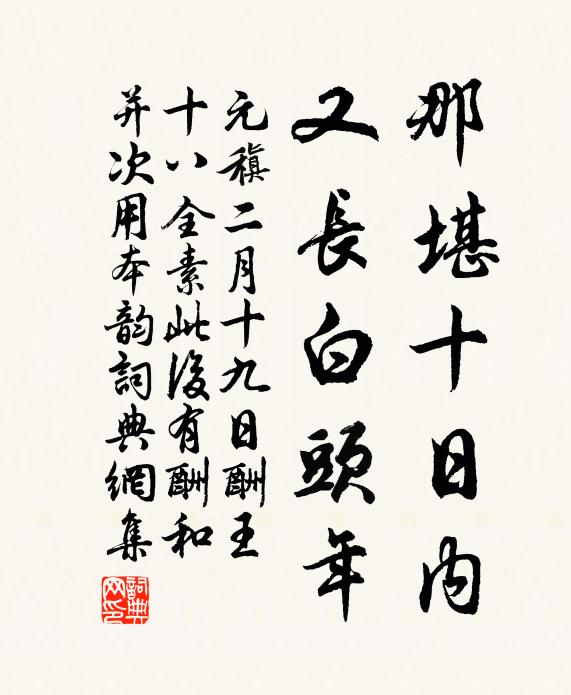 那堪十日內
又長白頭年
元稹二月十九日酬王
十八全素此後有酬和
并次用本韻詞典網集
詞典網印